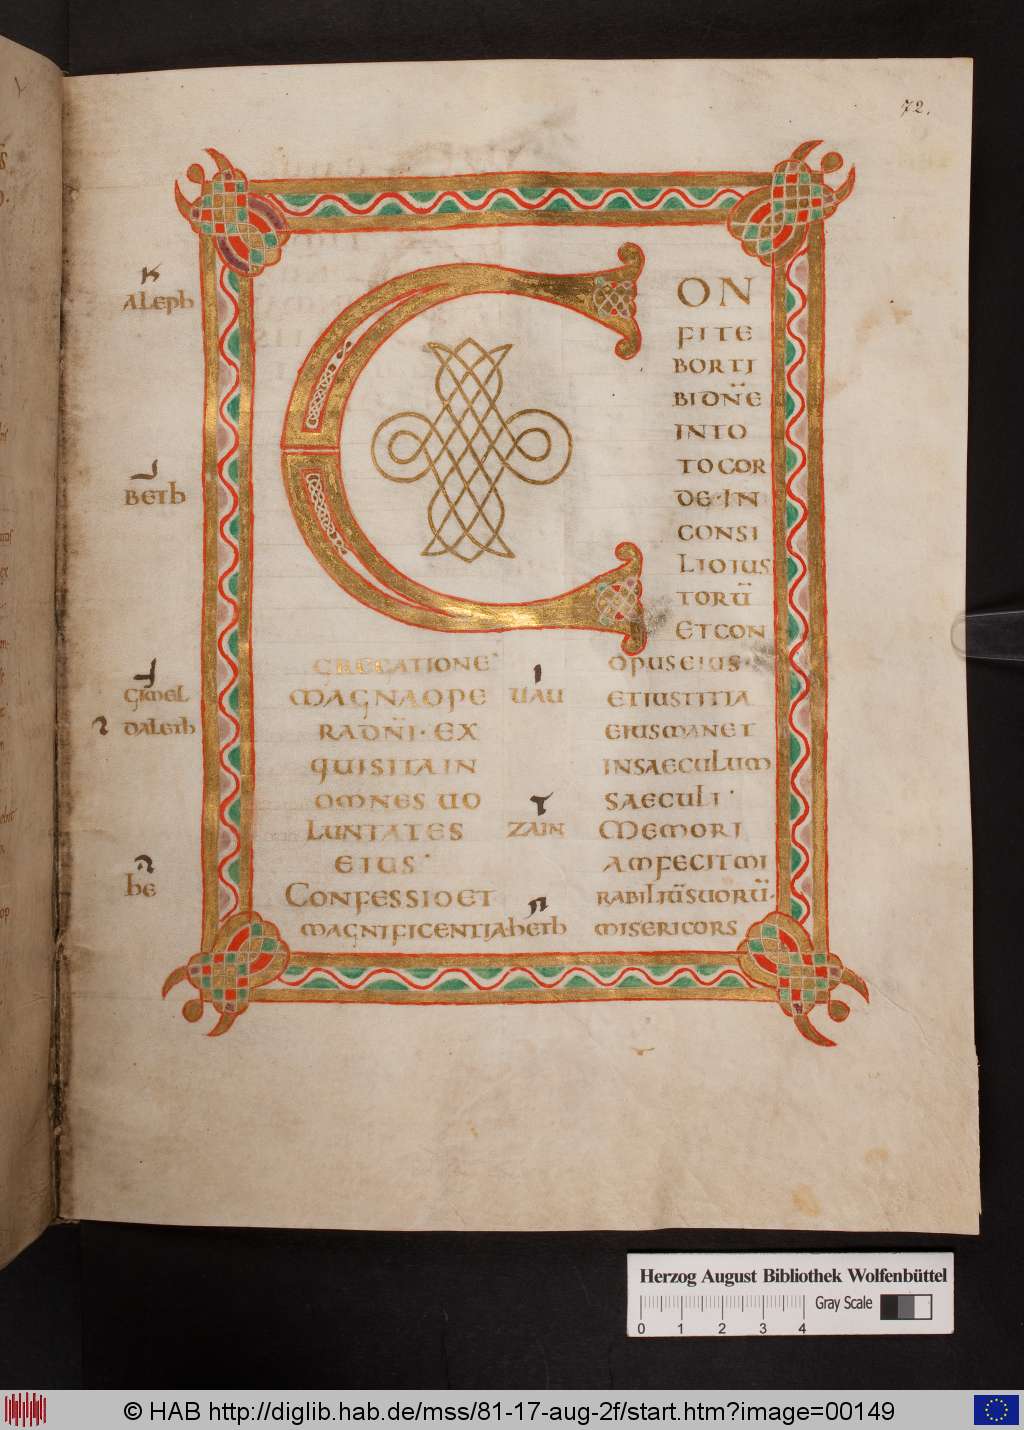 72.
א
ALEPh
CON
FITE
BORTI
BI DN̄E
INTO
TO COR
DE · IN
CONSI
LIO IUS
TORŪ
ET CON
ב
BETh
ג
GIMEL
ד
DALETh
ה
hE
CREGATIONE
MAGNA OPE
RA DN̄I · EX
QUISITA IN
OMNES UO
LUNTATES
EIUS
CONFESSIO ET
MAGNIFICENTIA
ו
UAU
ז
ZAIN
ח
hETh
OPUS EIUS ·
ET IUSTITIA
EIUS MANET
IN SAECULUM
SAECULI ·
MEMORI
AM FECIT MI
RABILIŪ SUORŪ ·
MISERICORS
Herzog August Bibliothek Wolfenbüttel
Gray Scale
0 1 2 3 4
© HAB http://diglib.hab.de/mss/81-17-aug-2f/start.htm?image=00149